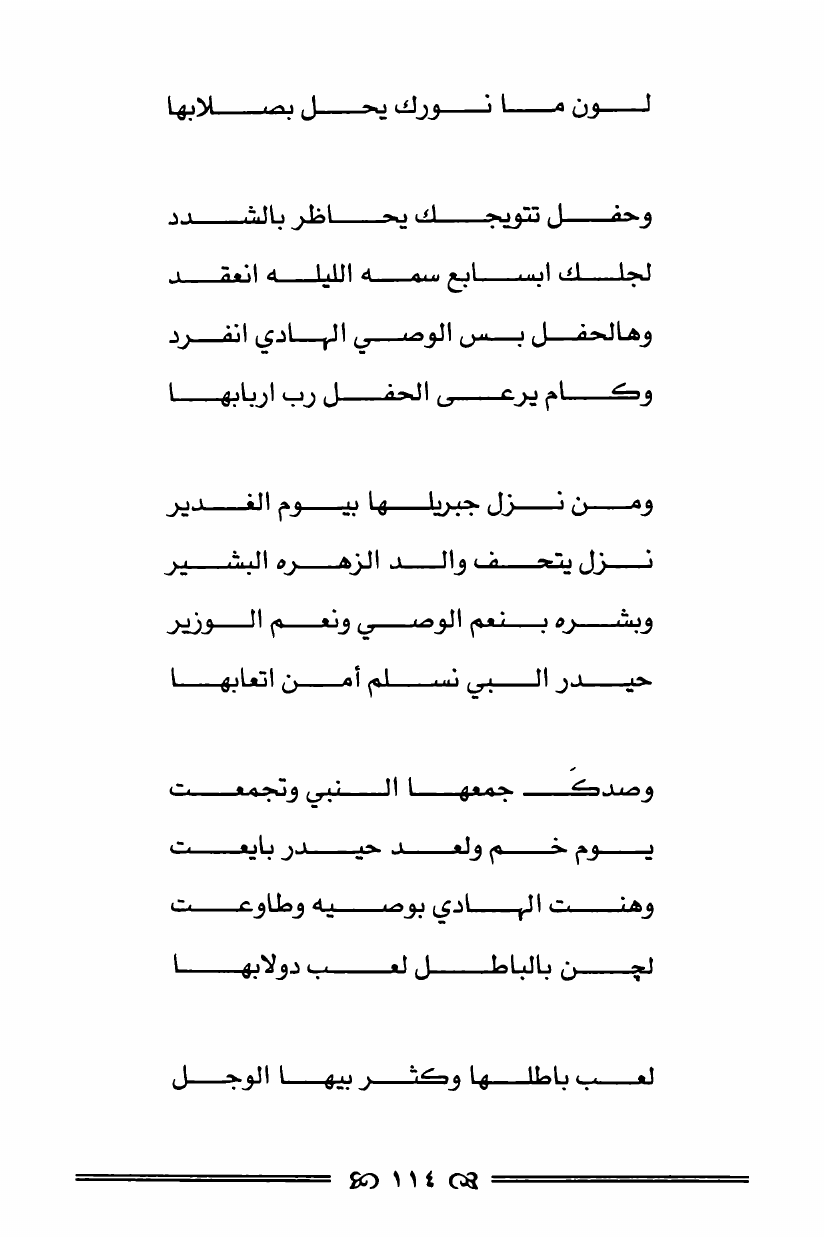 لون ما نورك يحل بصلابها
وحفل تتويجك يحاظر بالشدد
لجلك ابسابع سمه الليله انعقد
وهالحفل بس الوصي الهادي انفرد
وكام يرعى الحفل رب اربابها
ومن نزل جبريلها بيوم الغدير
نزل يتحف والد الزهره البشير
وبشره بنعم الوصي ونعم الوزير
حيدر البي نسلم أمن اتعابها
وصدكَ جمعها النبي وتجمعت
يوم خم ولعد حيدر بايعت
وهنت الهادي بوصيه وطاوعت
لچن بالباطل لعب دولابها
لعب باطلها وكثر بيها الوجل
١١٤